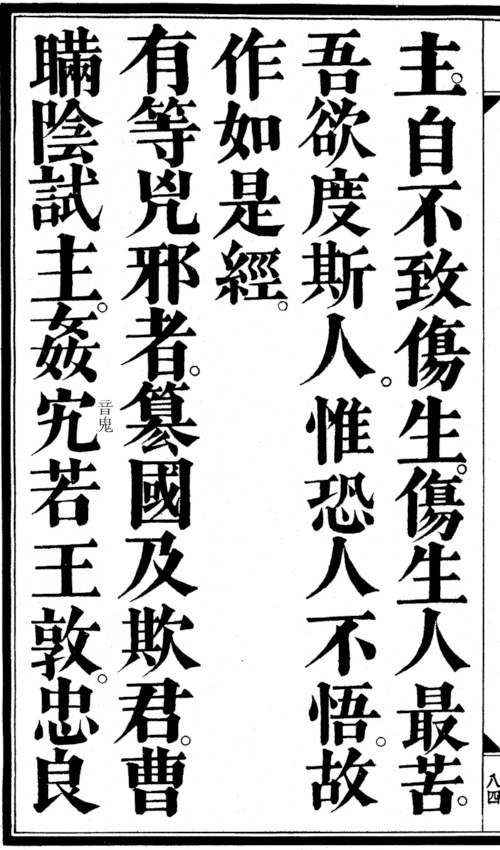 主。自不致傷生。傷生人最苦。
吾欲度斯人。惟恐人不悟。故
作如是經。
有等兇邪者。篡國及欺君。曹
瞞陰試主。姦宄若王敦。忠良
音鬼
八四